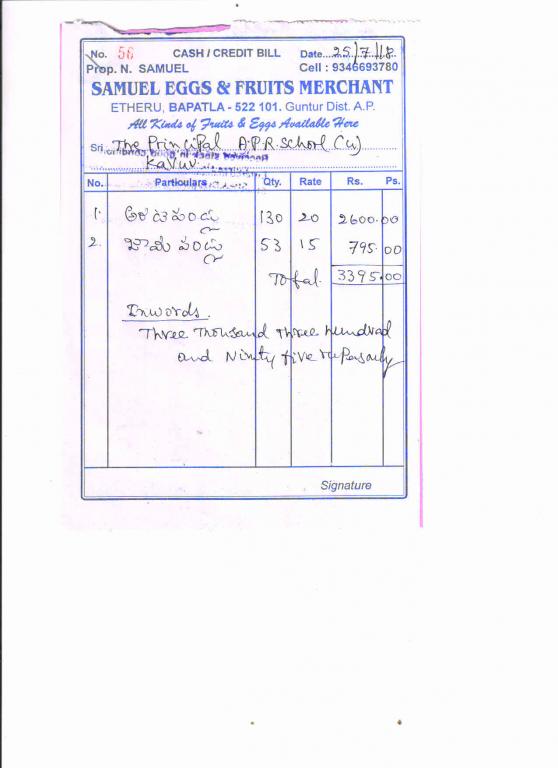 No. 56 CASH / CREDIT BILL Date...25/7/18
Prop. N. SAMUEL Cell : 9346693780
SAMUEL EGGS & FRUITS MERCHANT
ETHERU, BAPATLA - 522 101. Guntur Dist. A.P.
All Kinds of Fruits & Eggs Available Here
Sri The Principal A.P.R. School (U)
Kavur
No. Particulars Qty. Rate Rs. Ps.
1. అరటిపండ్లు 130 20 2600.00
2. జామ పండ్లు 53 15 795.00
Total. 3395.00
Inwords.
Three Thousand Three hundred
and Ninty five
Signature